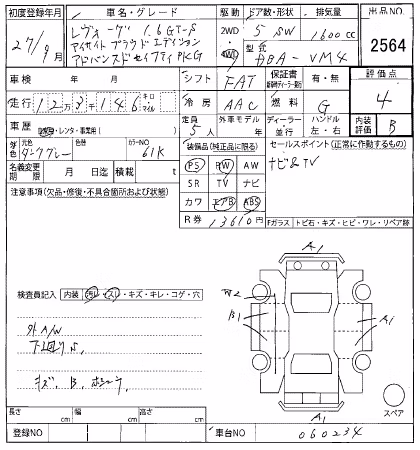 初度登録年月
27/9月
車名・グレード
レヴォーグ 1.6GT-S
アイサイト プラウド エディション
アドバンスドセイフティPKG
駆動
2WD
4WD
ドア数・形状
5 SW
排気量
1600cc
型式
DBA-VM4
出品NO.
2564
車検 年 月
シフト FAT
保証書 有・無
評価点
4
走行 12万3千146 キロ マイル
冷房 AAC
燃料 G
車歴
自家・レンタ・事業用( )
定員 5人
外車モデル 年
ディーラー・並行
ハンドル 左・右
内装評価 B
元色 ダークグレー
色替
カラーNO 61K
装備品(純正品に限る)
PS PW AW
SR TV ナビ
カワ エアB ABS
R券 13610円
セールスポイント(正常に作動するもの)
ナビ&TV
名義変更期限 月 日迄
積載 t
注意事項(欠品・修復・不具合箇所および状態)
Fガラス トビ石・キズ・ヒビ・ワレ・リペア跡
検査員記入 内装 汚レ・スレ・キズ・キレ・コゲ・穴
外A/W
下回りS
キズ、B、
A1
W2
B1
A1
A1
スペア
長さ cm
幅 cm
高さ cm
登録NO
車台NO 060234